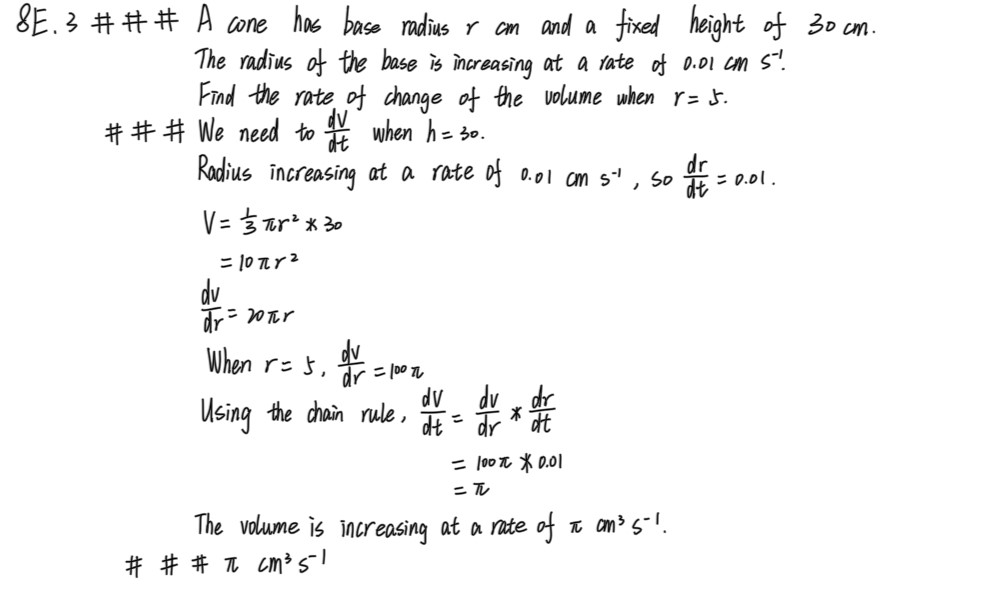 8E.3 ### A cone has base radius r cm and a fixed height of 30 cm.
The radius of the base is increasing at a rate of 0.01 cm s⁻¹.
Find the rate of change of the volume when r = 5.
### We need to dV/dt when h = 30.
Radius increasing at a rate of 0.01 cm s⁻¹, so dr/dt = 0.01.
V = 1/3 πr² * 30
= 10πr²
dv/dr = 20πr
When r = 5, dv/dr = 100π
Using the chain rule, dV/dt = dv/dr * dr/dt
= 100π * 0.01
= π
The volume is increasing at a rate of π cm³ s⁻¹.
### π cm³ s⁻¹